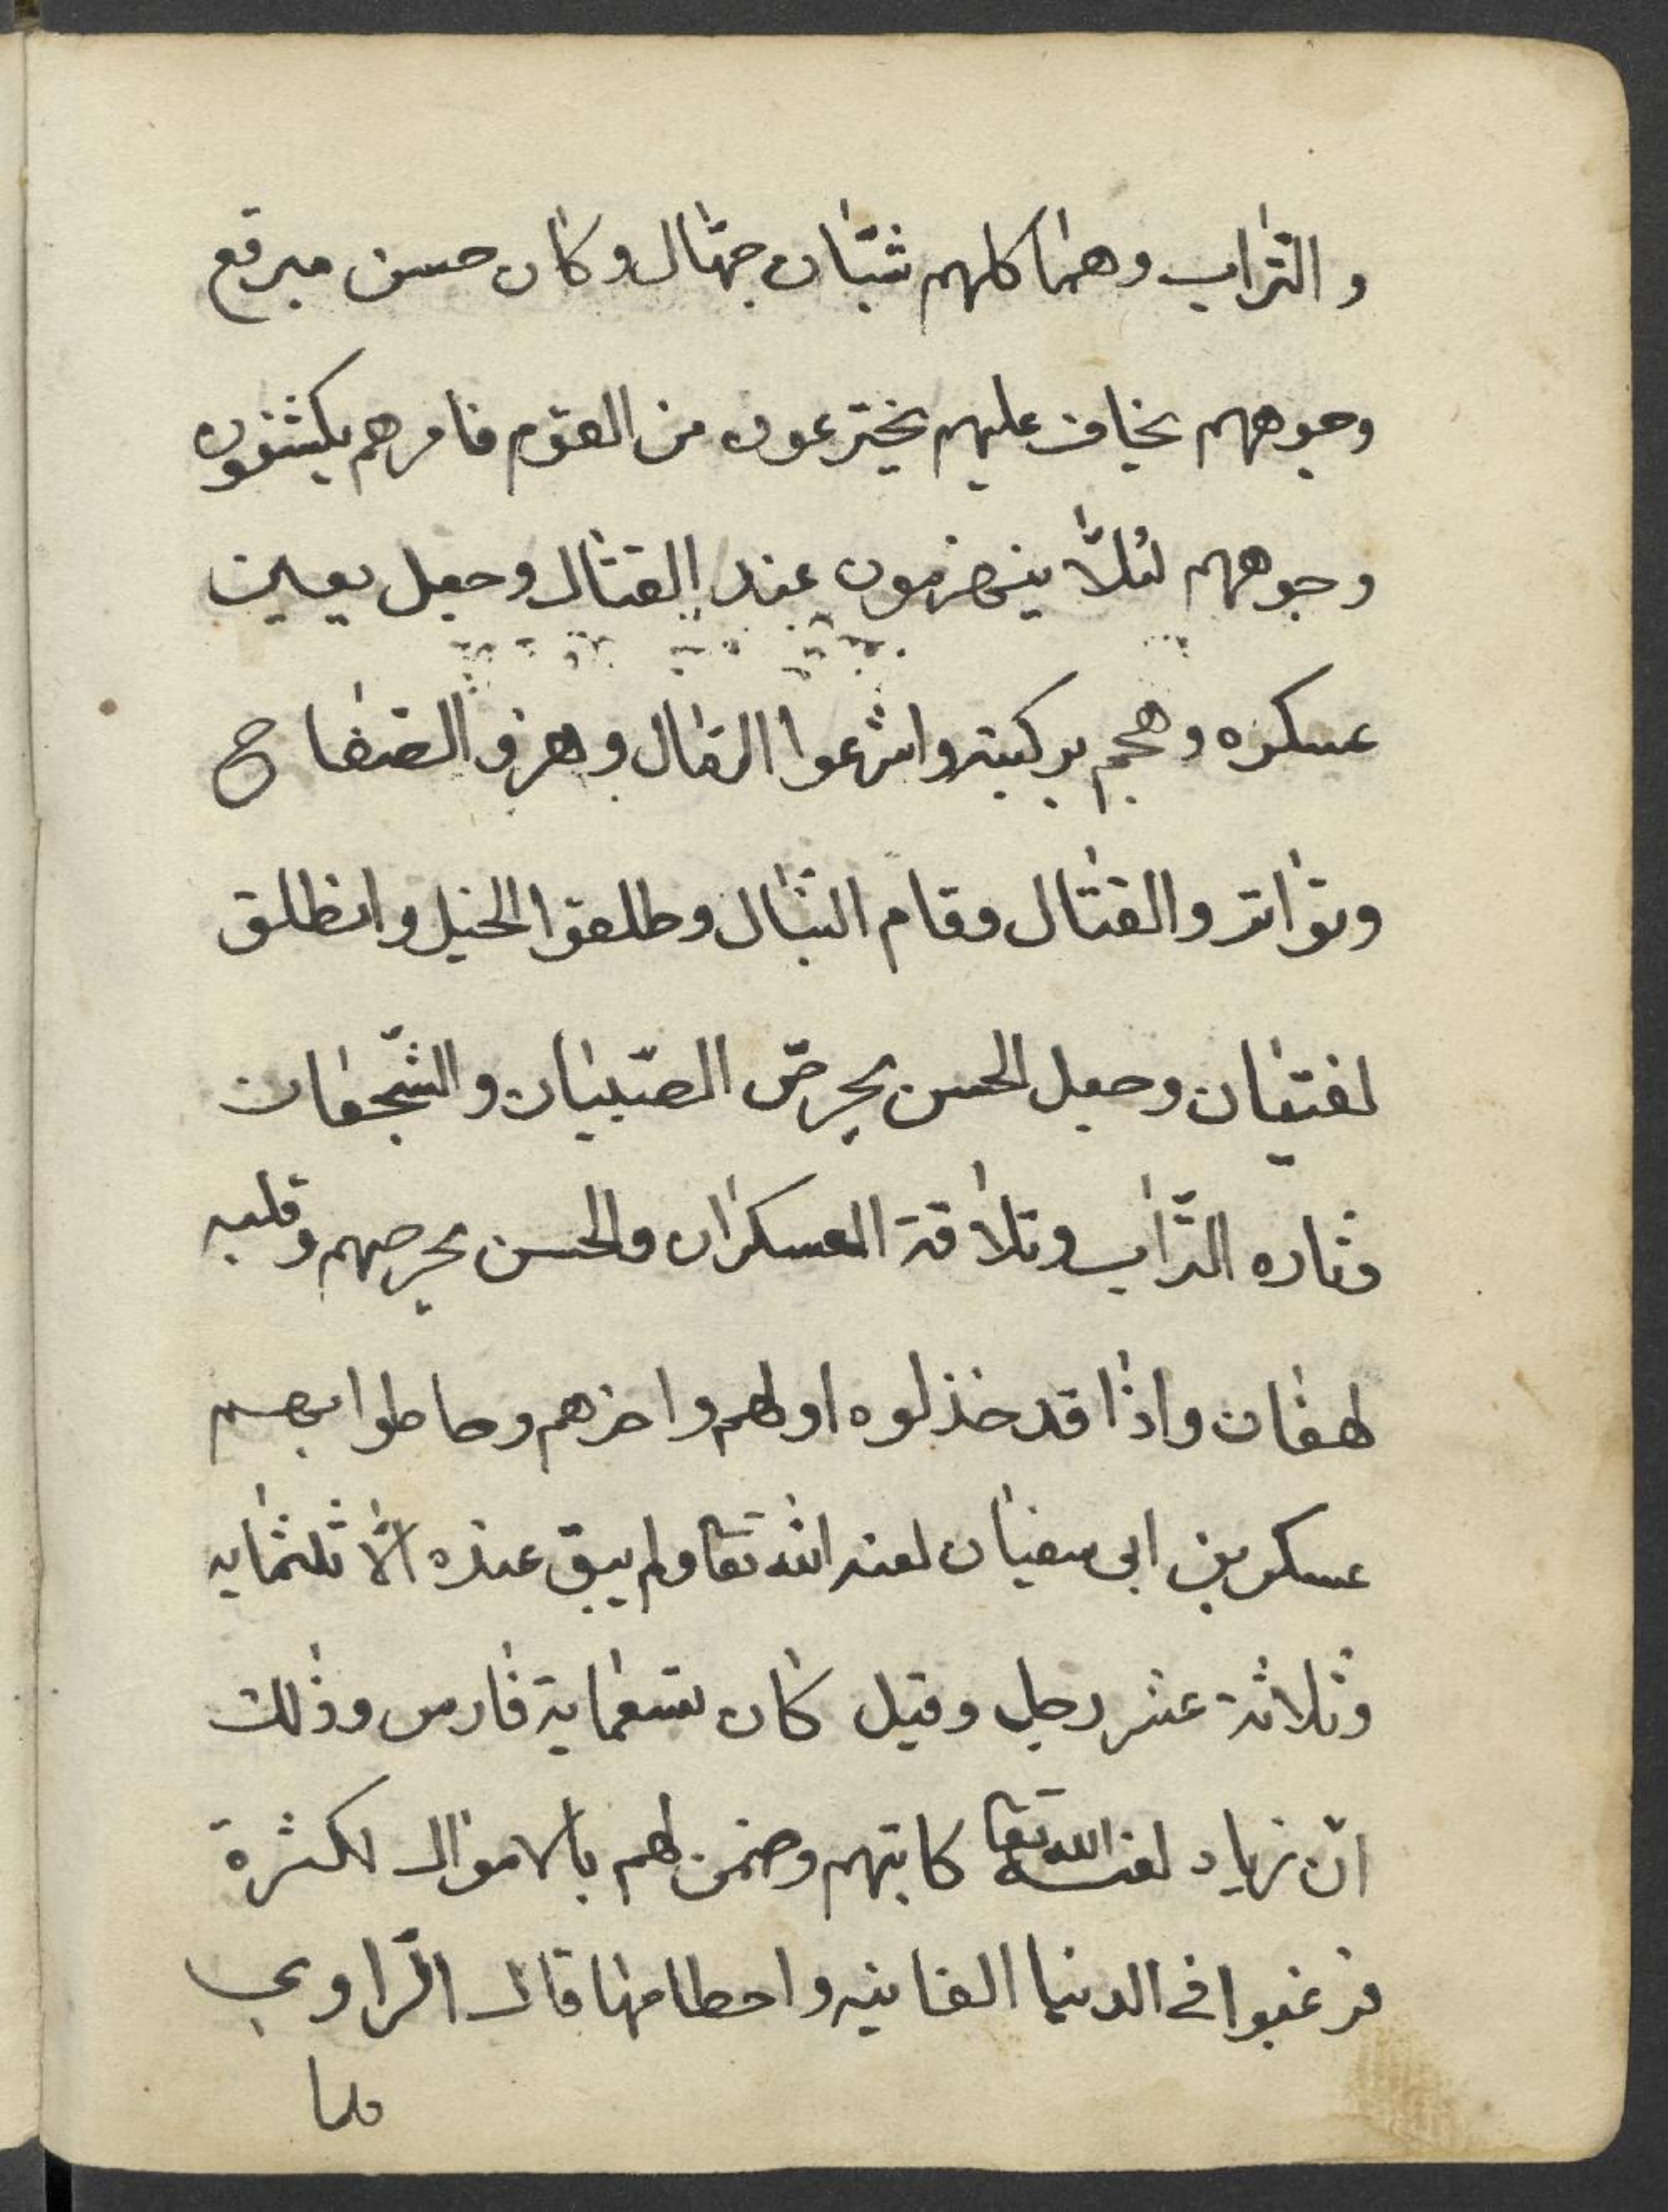 و التراب وهما كلهم شبّان جهّال وكان حسن مبرقع
وجوههم يخاف عليهم يخترعون من القوم فامرهم يكشفون
وجوههم لئلّا ينهزمون عند القتال وجعل يعين
عسكره وهجم بركبته واشرعوا الرمال وهزو الصفاح
وتواتر والقتال وقام النبّال وطلقوا الخيل وانطلق
لفتيان وجعل الحسن يحرضّ الصّبيان والشّجعان
وثاره التّراب وتلاقة العسكران والحسن يحرصهم وقلبه
لهفان واذا قد خذلوه اولهم واخرهم وحاطوا بهم
عسكر بن ابى سفيان لعنه الله تعا ولم يبق عنده الّا ثلثمايه
وثلاثة عشر رجل وقيل كان تسعماية فارس وذلك
انّ زياد لعنه الله تعا كاتبهم وضمن لهم بالاموال لكثرة
فرغبوا فى الدنيا الفانيه واحطامها قال الرّاوي
فلما